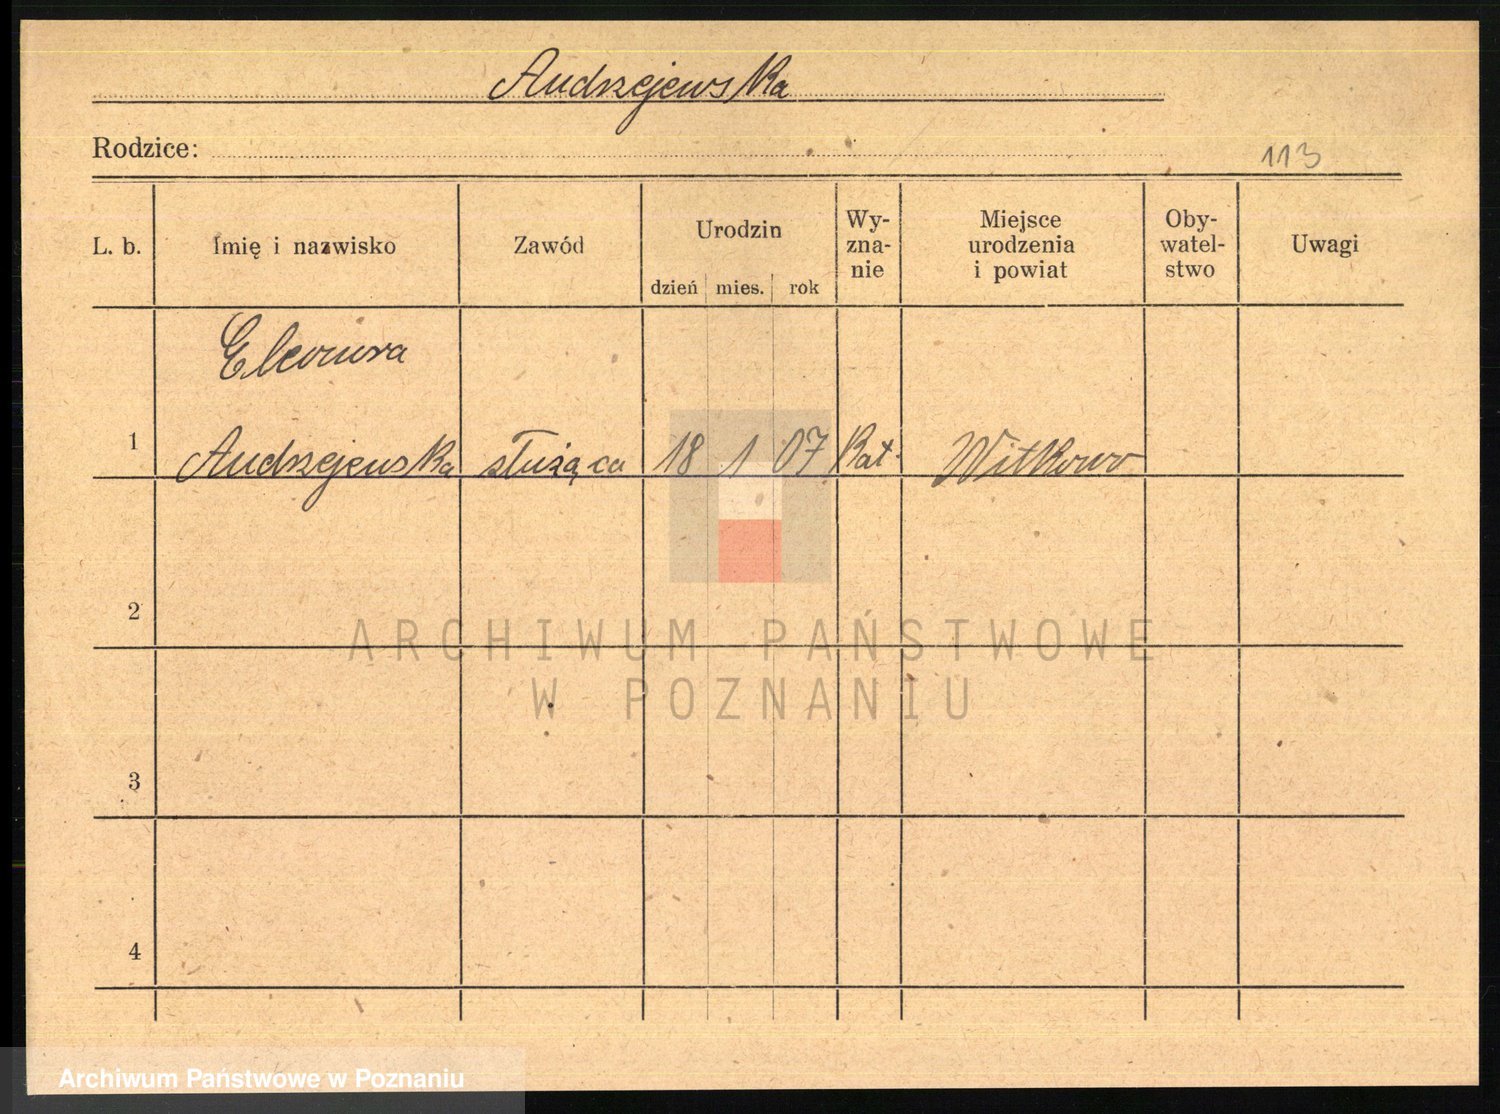 Andrzejewska
Rodzice:
113
L. b. Imię i nazwisko Zawód Urodzin dzień mies. rok Wy-
zna-
nie Miejsce
urodzenia
i powiat Oby-
watel-
stwo Uwagi
Eleonora
1 Andrzejewska służąca 18 1 07 Kat. Witkowo
2
ARCHIWUM PAŃSTWOWE
W POZNANIU
3
4
Archiwum Państwowe w Poznaniu